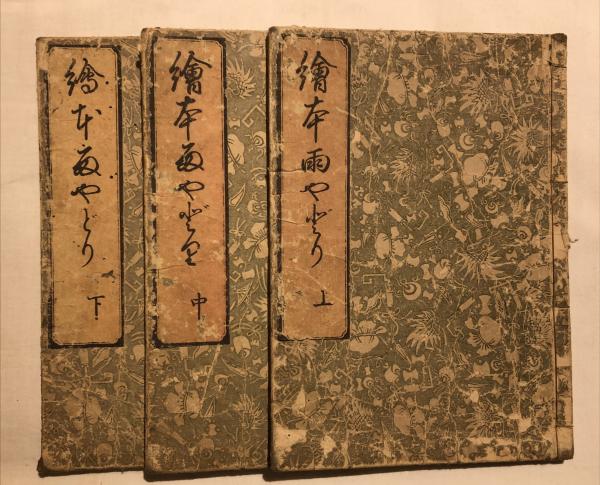 繪本雨やどり
上
繪本雨やどり
中
繪本雨やどり
下